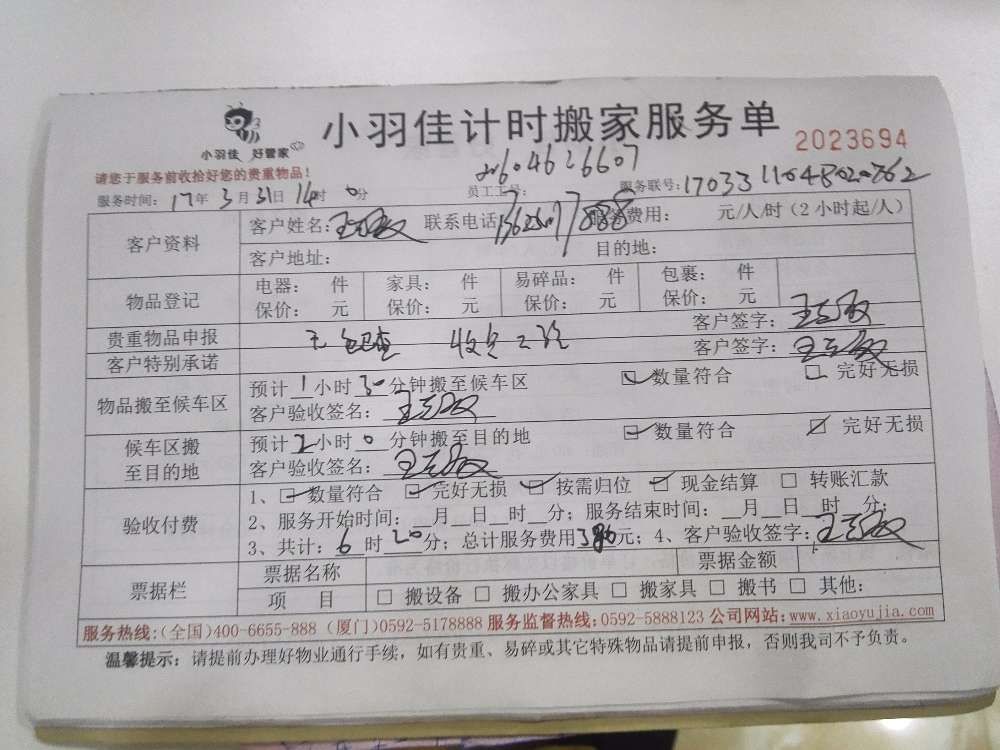 小羽佳计时搬家服务单
小羽佳 好管家
2023694
请您于服务前收拾好您的贵重物品！
服务时间：17年3月31日14时0分 员工工号： 服务联号：
客户资料
客户姓名： 联系电话 服务费用： 元/人/时（2小时起/人）
客户地址： 目的地：
物品登记
电器： 件 家具： 件 易碎品： 件 包裹： 件
保价： 元 保价： 元 保价： 元 保价： 元
贵重物品申报 无 客户签字：
客户特别承诺 客户签字：
物品搬至候车区
预计1小时30分钟搬至候车区 数量符合 完好无损
客户验收签名：
候车区搬至目的地
预计2小时0分钟搬至目的地 数量符合 完好无损
客户验收签名：
验收付费
1、数量符合 完好无损 按需归位 现金结算 转账汇款
2、服务开始时间：__月__日__时__分；服务结束时间：__月__日__时__分；
3、共计：6时20分；总计服务费用元；4、客户验收签字：
票据栏
票据名称 票据金额
项 目 搬设备 搬办公家具 搬家具 搬书 其他：
服务热线：（全国）400-6655-888（厦门）0592-5178888 服务监督热线：0592-5888123 公司网站：www.xiaoyujia.com
温馨提示：请提前办理好物业通行手续，如有贵重、易碎或其它特殊物品请提前申报，否则我司不予负责。